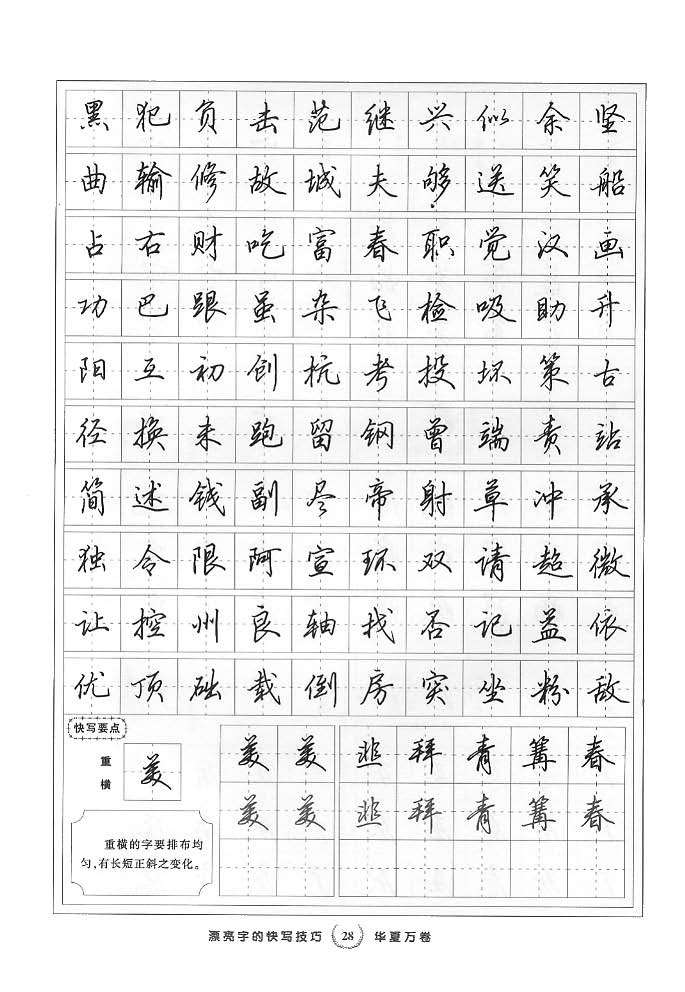 黑犯负击范继兴似余坚
曲输修故城夫够送笑船
占右财吃富春职觉汉画
功巴跟虽杂飞检吸助升
阳互初创杭考投坏策古
径换未跑留钢曾端责站
简述钱副尽帝射草冲承
独令限阿宣环双请超微
让控州良轴找否记益依
优顶础载倒房突坐粉敌
快写要点
重横
美
美美韭拜青篝春
美美韭拜青篝春
重横的字要排布均
匀,有长短正斜之变化。
漂亮字的快写技巧 28 华夏万卷